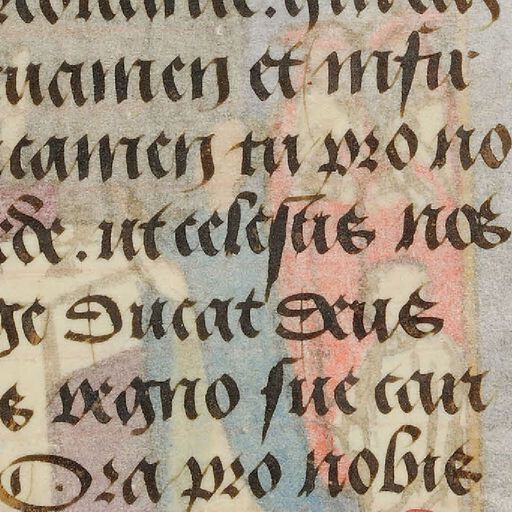 uamen et in su
camen tu pro no
ede. ut celestis nos
ge Ducat deus
s regno sue cari
Ora pro nobis